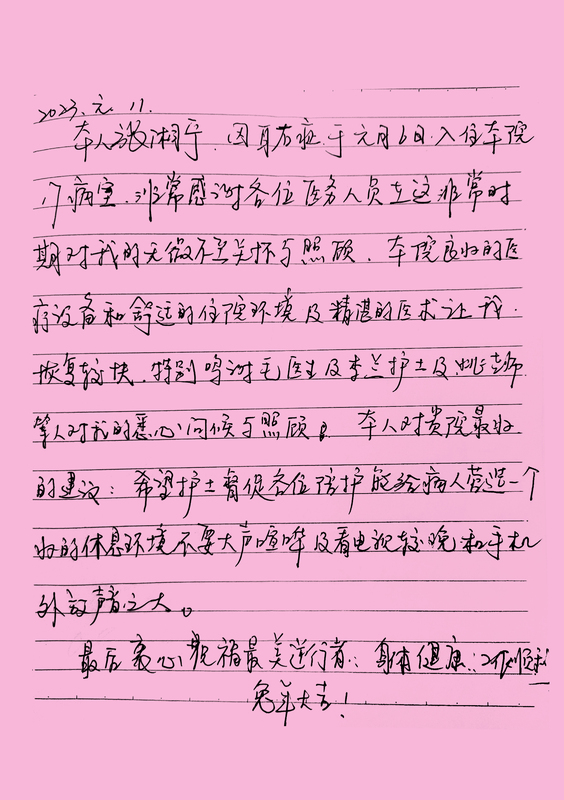 2023.元.11.
本人张湘于,因身有疵于元月6日入住本院
17病室,非常感谢各位医务人员在这非常时
期对我的无微不至关怀与照顾,本院良好的医
疗设备和舒适的住院环境及精湛的医术让我
恢复较快,特别鸣谢毛医生及李兰护士及姚老师
等人对我的悉心问候与照顾。本人对贵院最好
的建议:希望护士督促各位陪护能给病人营造一个
好的休息环境不要大声喧哗及看电视较晚和手机
外放声音之大。
最后衷心祝福最美逆行者:身体健康:工作顺利
兔年大吉!